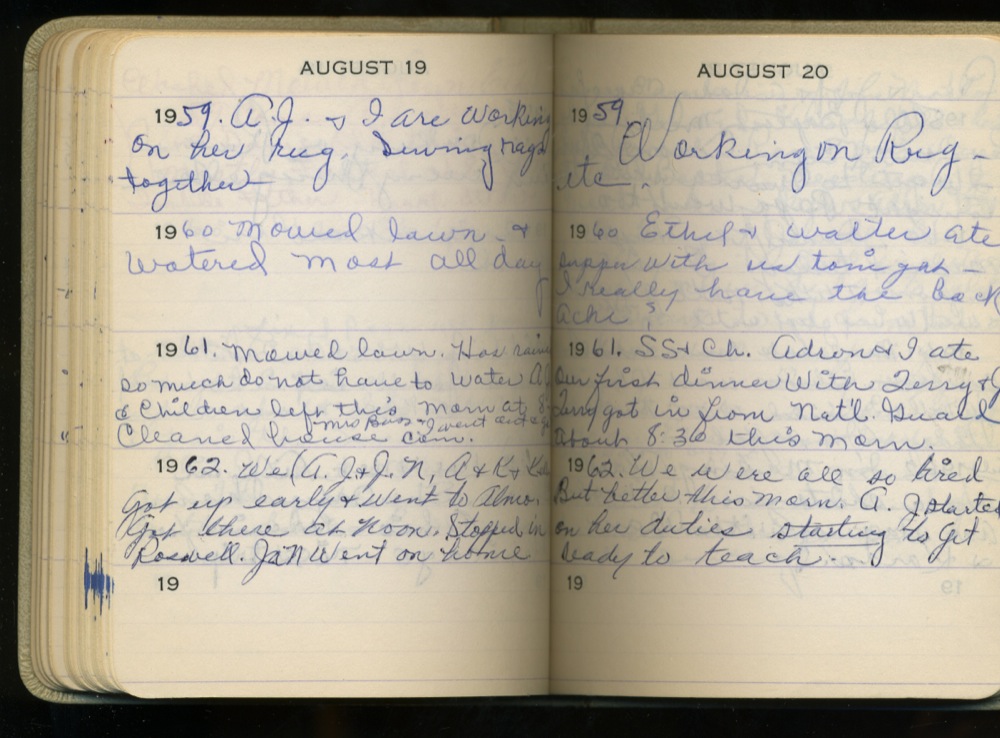 AUGUST 19
1959. A.J. & I are working
on her rug. Sewing rags
together
1960 Mowed lawn &
watered most all day
1961. Mowed lawn. Has rained
so much do not have to water A.J.
& Children left this morn at 8:
Mrs Bass & I went out & got
Cleaned house corn.
1962. We (A.J. & J.N, A & K &
Got up early & went to Almo.
Got there at noon. Stopped in
Roswell. J&N went on home
19
AUGUST 20
1959.
Working on Rug -
etc.
1960 Ethel & Walter ate
supper with us
I really have the back
ache
1961. SS & Ch. Adron & I ate
our first dinner with Terry & J
Terry got in from Nat'l. Guard
about 8:30 this morn.
1962. We were all so tired
But better this morn. A.J started
on her duties starting to get
ready to teach.
19